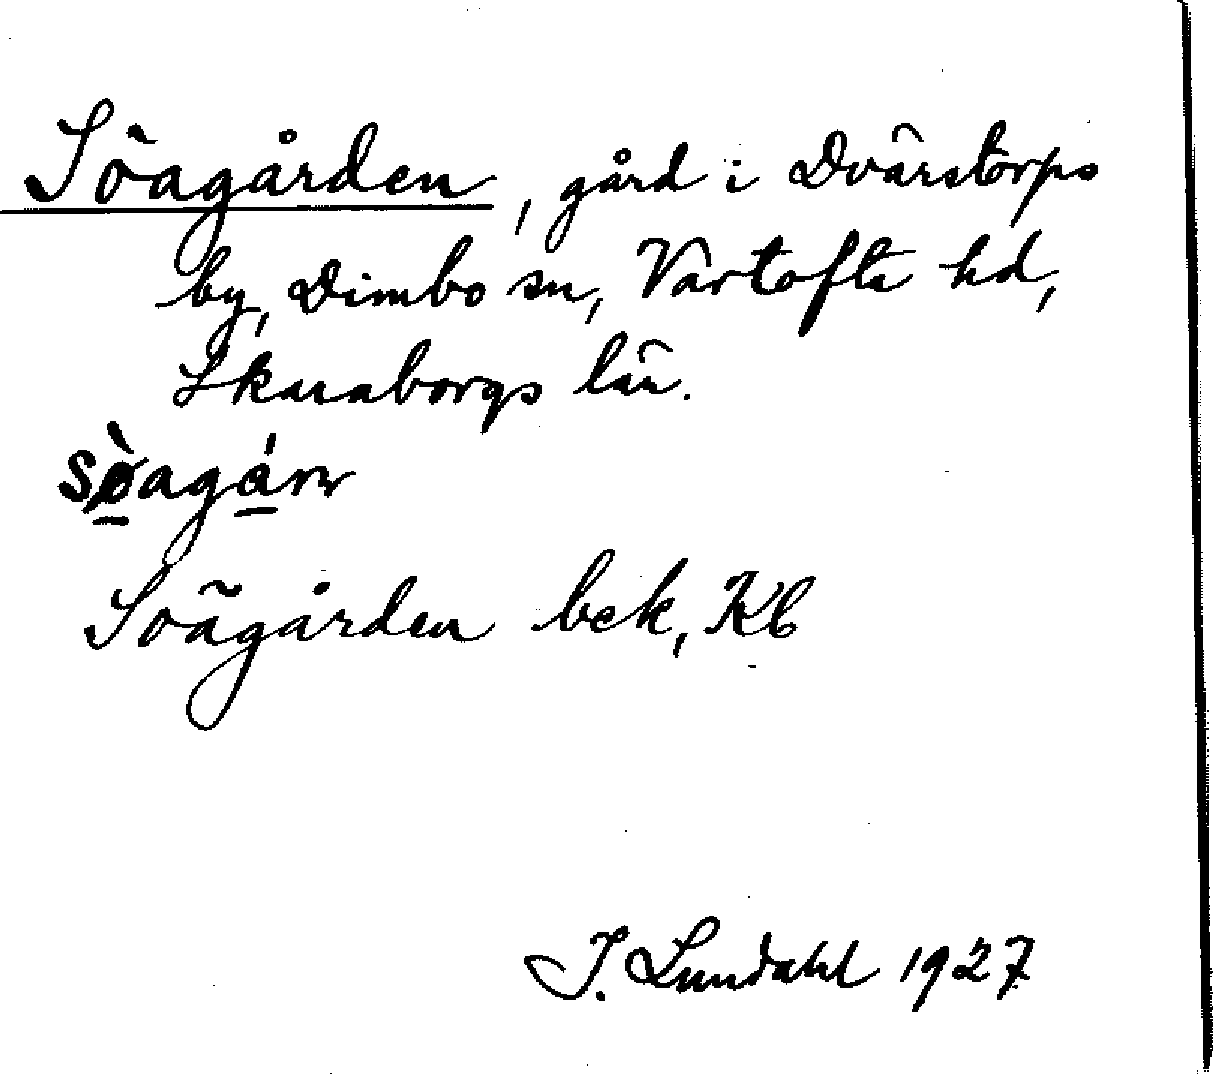 Söagården, gård i Dvärstorps
by, Dimbo sn, Vartofta hd,
Skaraborgs län.
Soägården bek, Kb
I. Lundahl 1927